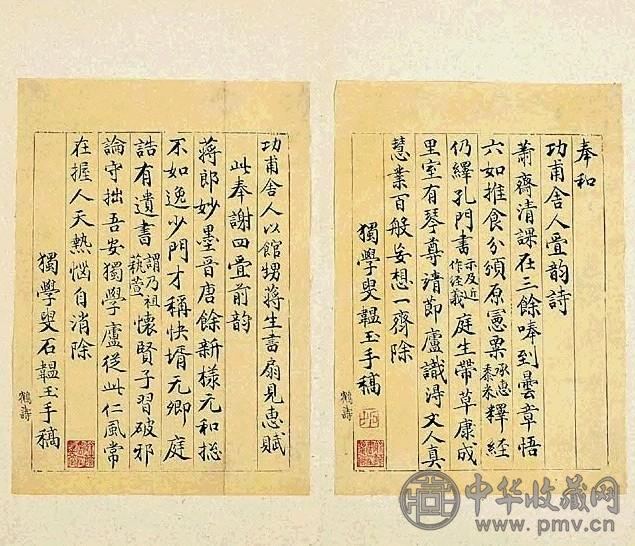 奉和
功甫舍人疊韵詩
蕭齋清課在三餘唪到曇章悟
六如推食分頒原憲粟承惠黍米釋經
仍繹孔門書示及近作經義庭生帶草康成
里室有琴尊靖節廬識得文人真
慧業百般妄想一齊除
獨學叟韞玉手稿
鶴詩
功甫舍人以館甥蔣生書扇見惠賦
此奉謝四疊前韵
蔣郎妙墨晉唐餘新樣元和捴
不如逸少門才稱快壻元卿庭
誥有遺書謂乃祖懷賢子習破邪
論守拙吾安獨學廬從此仁風常
在握人天熱惱自消除
獨學叟石韞玉手稿
鶴詩
中华收藏网
www.pmv.cn